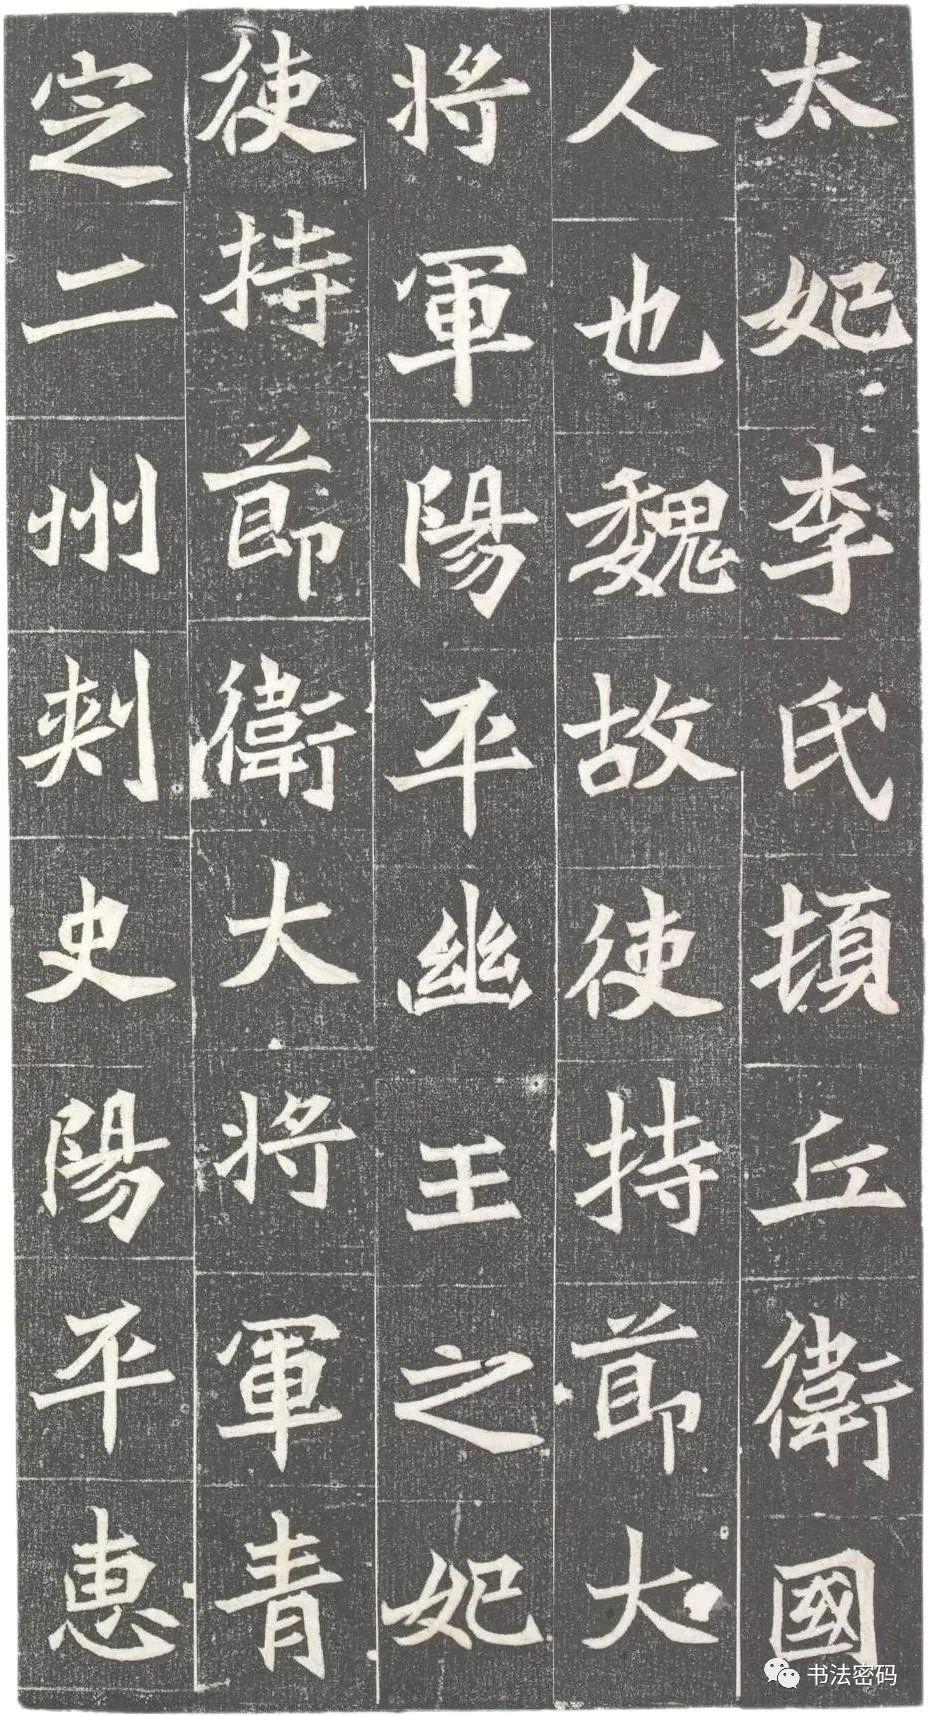 太妃李氏頓丘衛國
人也魏故使持節大
將軍陽平幽王之妃
使持節衛大將軍青
定二州刺史陽平惠
书法密码